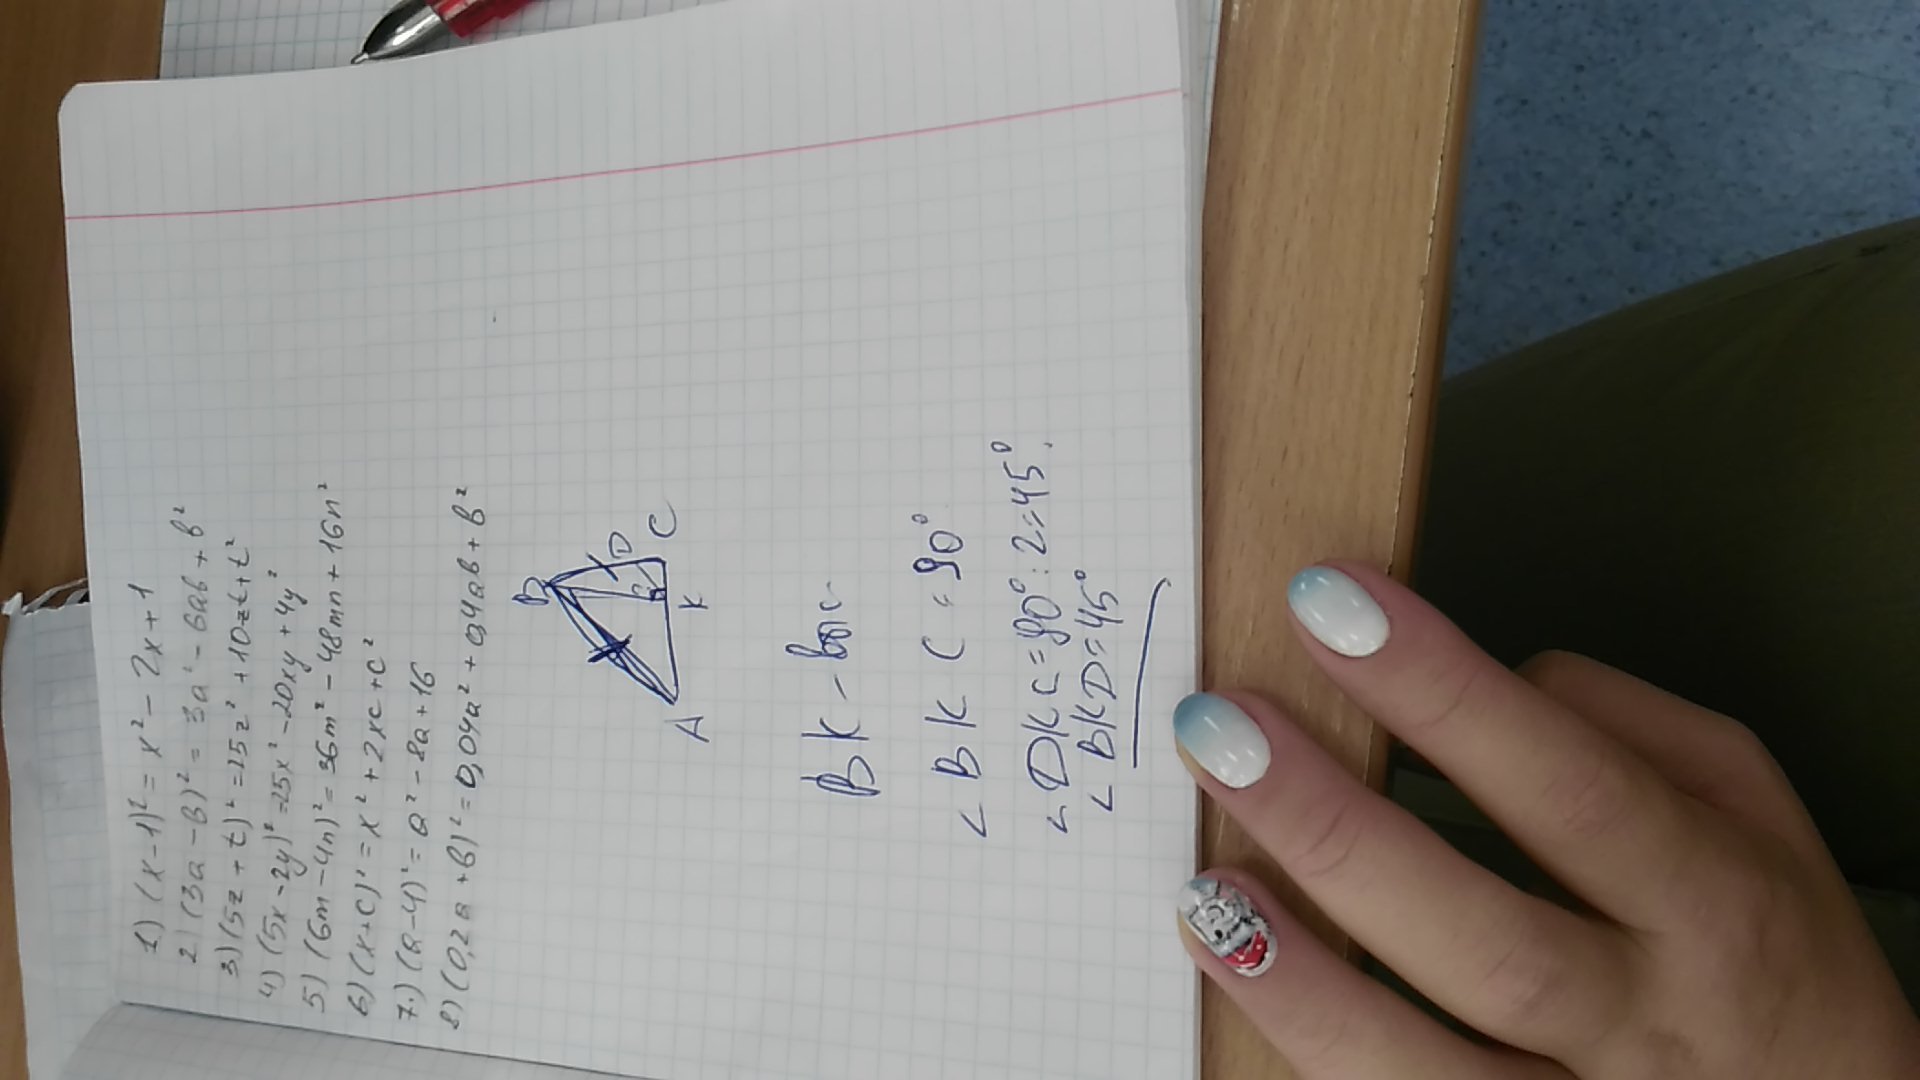 1) (x-1)² = x² - 2x + 1
2) (3a - b)² = 3a² - 6ab + b²
3) (5z + t)² = 25z² + 10zt + t²
4) (5x - 2y)² = 25x² - 20xy + 4y²
5) (6m - 4n)² = 36m² - 48mn + 16n²
6) (x+c)² = x² + 2xc + c²
7.) (a-4)² = a² - 8a + 16
8) (0,2a + b)² = 0,04a² + 0,4ab + b²
B
D
A
K
C
BK - выс
< BKC = 90°
< DKC = 90° : 2 = 45°.
< BKD = 45°